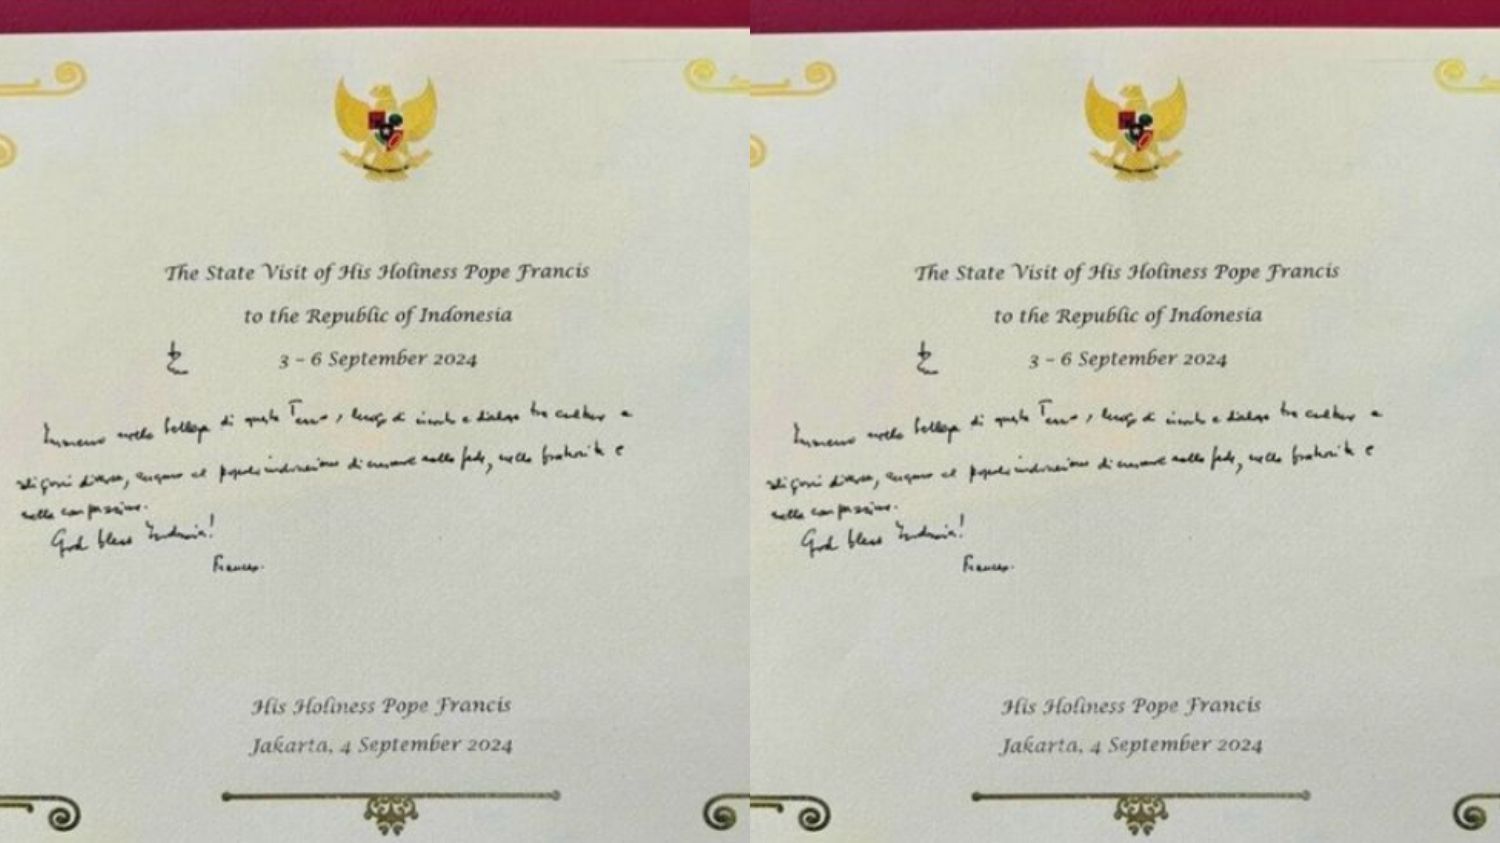 The State Visit of His Holiness Pope Francis
to the Republic of Indonesia
3 – 6 September 2024
Immerso nella bellezza di questa Terra, luogo di incontro e dialogo tra culture e
religioni diverse, auguro al popolo indonesiano di crescere nella fede, nella fraternità e
nella compassione.
God bless Indonesia!
Francesco.
His Holiness Pope Francis
Jakarta, 4 September 2024
The State Visit of His Holiness Pope Francis
to the Republic of Indonesia
3 – 6 September 2024
Immerso nella bellezza di questa Terra, luogo di incontro e dialogo tra culture e
religioni diverse, auguro al popolo indonesiano di crescere nella fede, nella fraternità e
nella compassione.
God bless Indonesia!
Francesco.
His Holiness Pope Francis
Jakarta, 4 September 2024